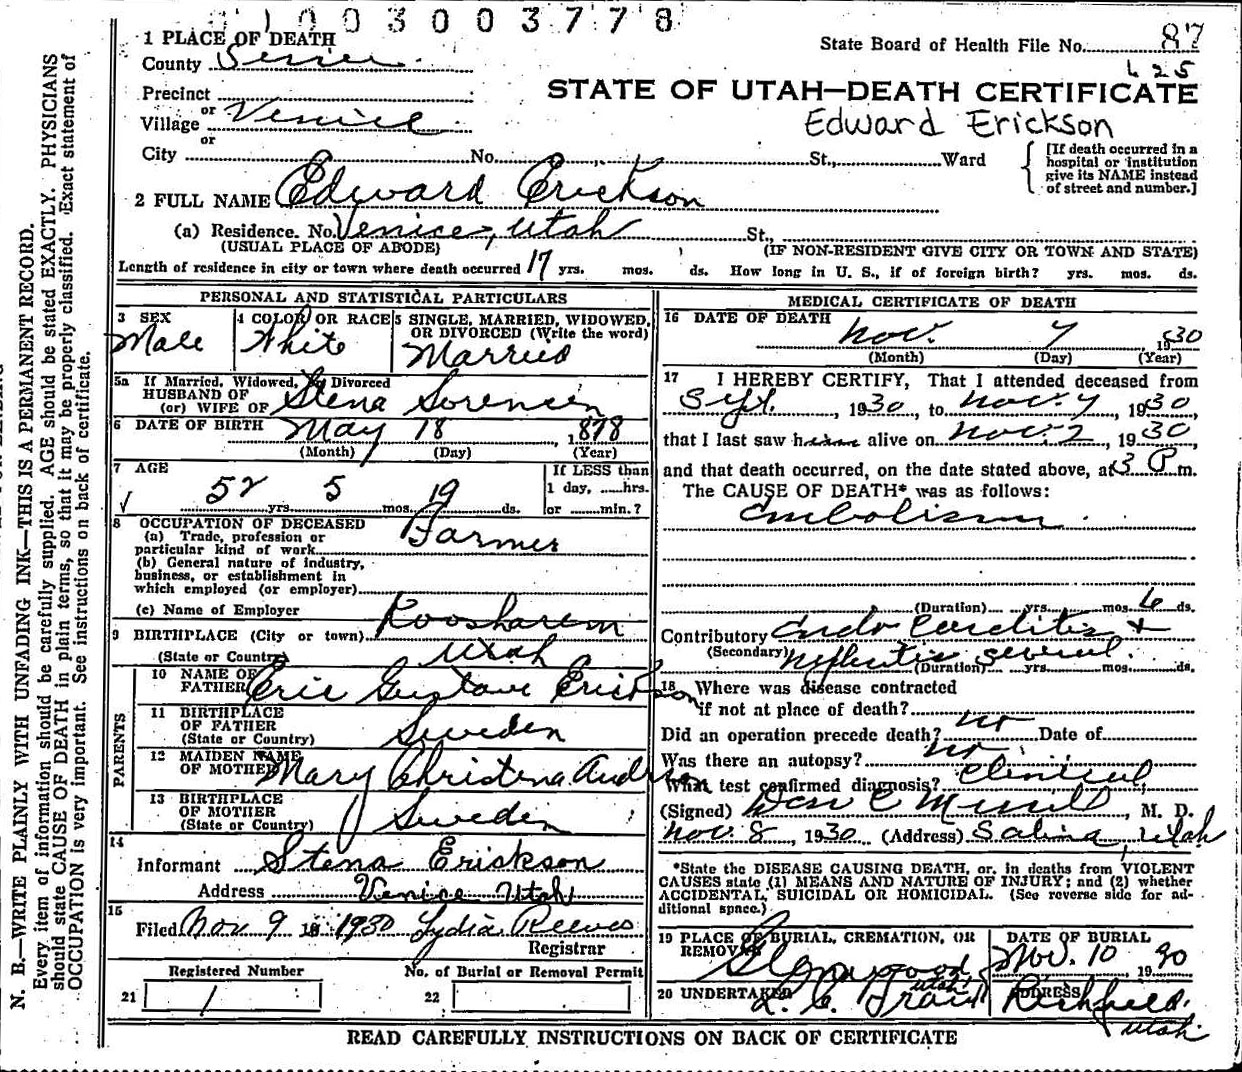 1003003778
1 PLACE OF DEATH
State Board of Health File No. 87
County Sevier
625
STATE OF UTAH—DEATH CERTIFICATE
Precinct
or
Village Venice
Edward Erickson
or
City No. St., Ward
[If death occurred in a
hospital or institution
give its NAME instead
of street and number.]
2 FULL NAME Edward Erickson
(a) Residence. No. Venice, Utah St.,
(USUAL PLACE OF ABODE) (IF NON-RESIDENT GIVE CITY OR TOWN AND STATE)
Length of residence in city or town where death occurred 17 yrs. mos. ds. How long in U. S., if of foreign birth? yrs. mos. ds.
PERSONAL AND STATISTICAL PARTICULARS
3 SEX
Male
4 COLOR OR RACE
White
5 SINGLE, MARRIED, WIDOWED,
OR DIVORCED (Write the word)
Married
5a If Married, Widowed, or Divorced
HUSBAND OF
(or) WIFE OF Stena Sorensen
6 DATE OF BIRTH May 18, 1878
(Month) (Day) (Year)
7 AGE
52 yrs. 5 mos. 19 ds.
If LESS than
1 day, hrs.
or min.?
8 OCCUPATION OF DECEASED
(a) Trade, profession or
particular kind of work Farmer
(b) General nature of industry,
business, or establishment in
which employed (or employer)
(c) Name of Employer
9 BIRTHPLACE (City or town) Koosharem
(State or Country) Utah
PARENTS
10 NAME OF
FATHER Eric Gustave Erickson
11 BIRTHPLACE
OF FATHER
(State or Country) Sweden
12 MAIDEN NAME
OF MOTHER Mary Christena
13 BIRTHPLACE
OF MOTHER
(State or Country) Sweden
14
Informant Stena Erickson
Address Venice Utah
15
Filed Nov 9 1930 Lydia Reeves
Registrar
Registered Number
21 1
No. of Burial or Removal Permit
22
MEDICAL CERTIFICATE OF DEATH
16 DATE OF DEATH
Nov. 7 1930
(Month) (Day) (Year)
17 I HEREBY CERTIFY, That I attended deceased from
Sept. , 1930, to Nov. 7, 1930
that I last saw him alive on Nov. 2, 1930
and that death occurred, on the date stated above, at 3 P m.
The CAUSE OF DEATH* was as follows:
Embolism
(Duration) yrs. mos. 6 ds.
Contributory Endo Carditis +
(Secondary) Nephritis several.
(Duration) yrs. mos. ds.
18 Where was disease contracted
if not at place of death?
Did an operation precede death? no Date of
Was there an autopsy? no
What test confirmed diagnosis? Clinical
(Signed) Merrill, M. D.
Nov. 8, 1930 (Address) Salina, Utah
*State the DISEASE CAUSING DEATH, or, in deaths from VIOLENT
CAUSES state (1) MEANS AND NATURE OF INJURY; and (2) whether
ACCIDENTAL, SUICIDAL OR HOMICIDAL. (See reverse side for ad-
ditional space.)
19 PLACE OF BURIAL, CREMATION, OR
REMOVAL
Glenwood
Utah
DATE OF BURIAL
Nov. 10 1930
20 UNDERTAKER
ADDRESS
Richfield.
Utah.
READ CAREFULLY INSTRUCTIONS ON BACK OF CERTIFICATE
N. B.—WRITE PLAINLY WITH UNFADING INK—THIS IS A PERMANENT RECORD.
Every item of information should be carefully supplied. AGE should be stated EXACTLY. PHYSICIANS
should state CAUSE OF DEATH in plain terms, so that it may be properly classified. Exact statement of
OCCUPATION is very important. See instructions on back of certificate.